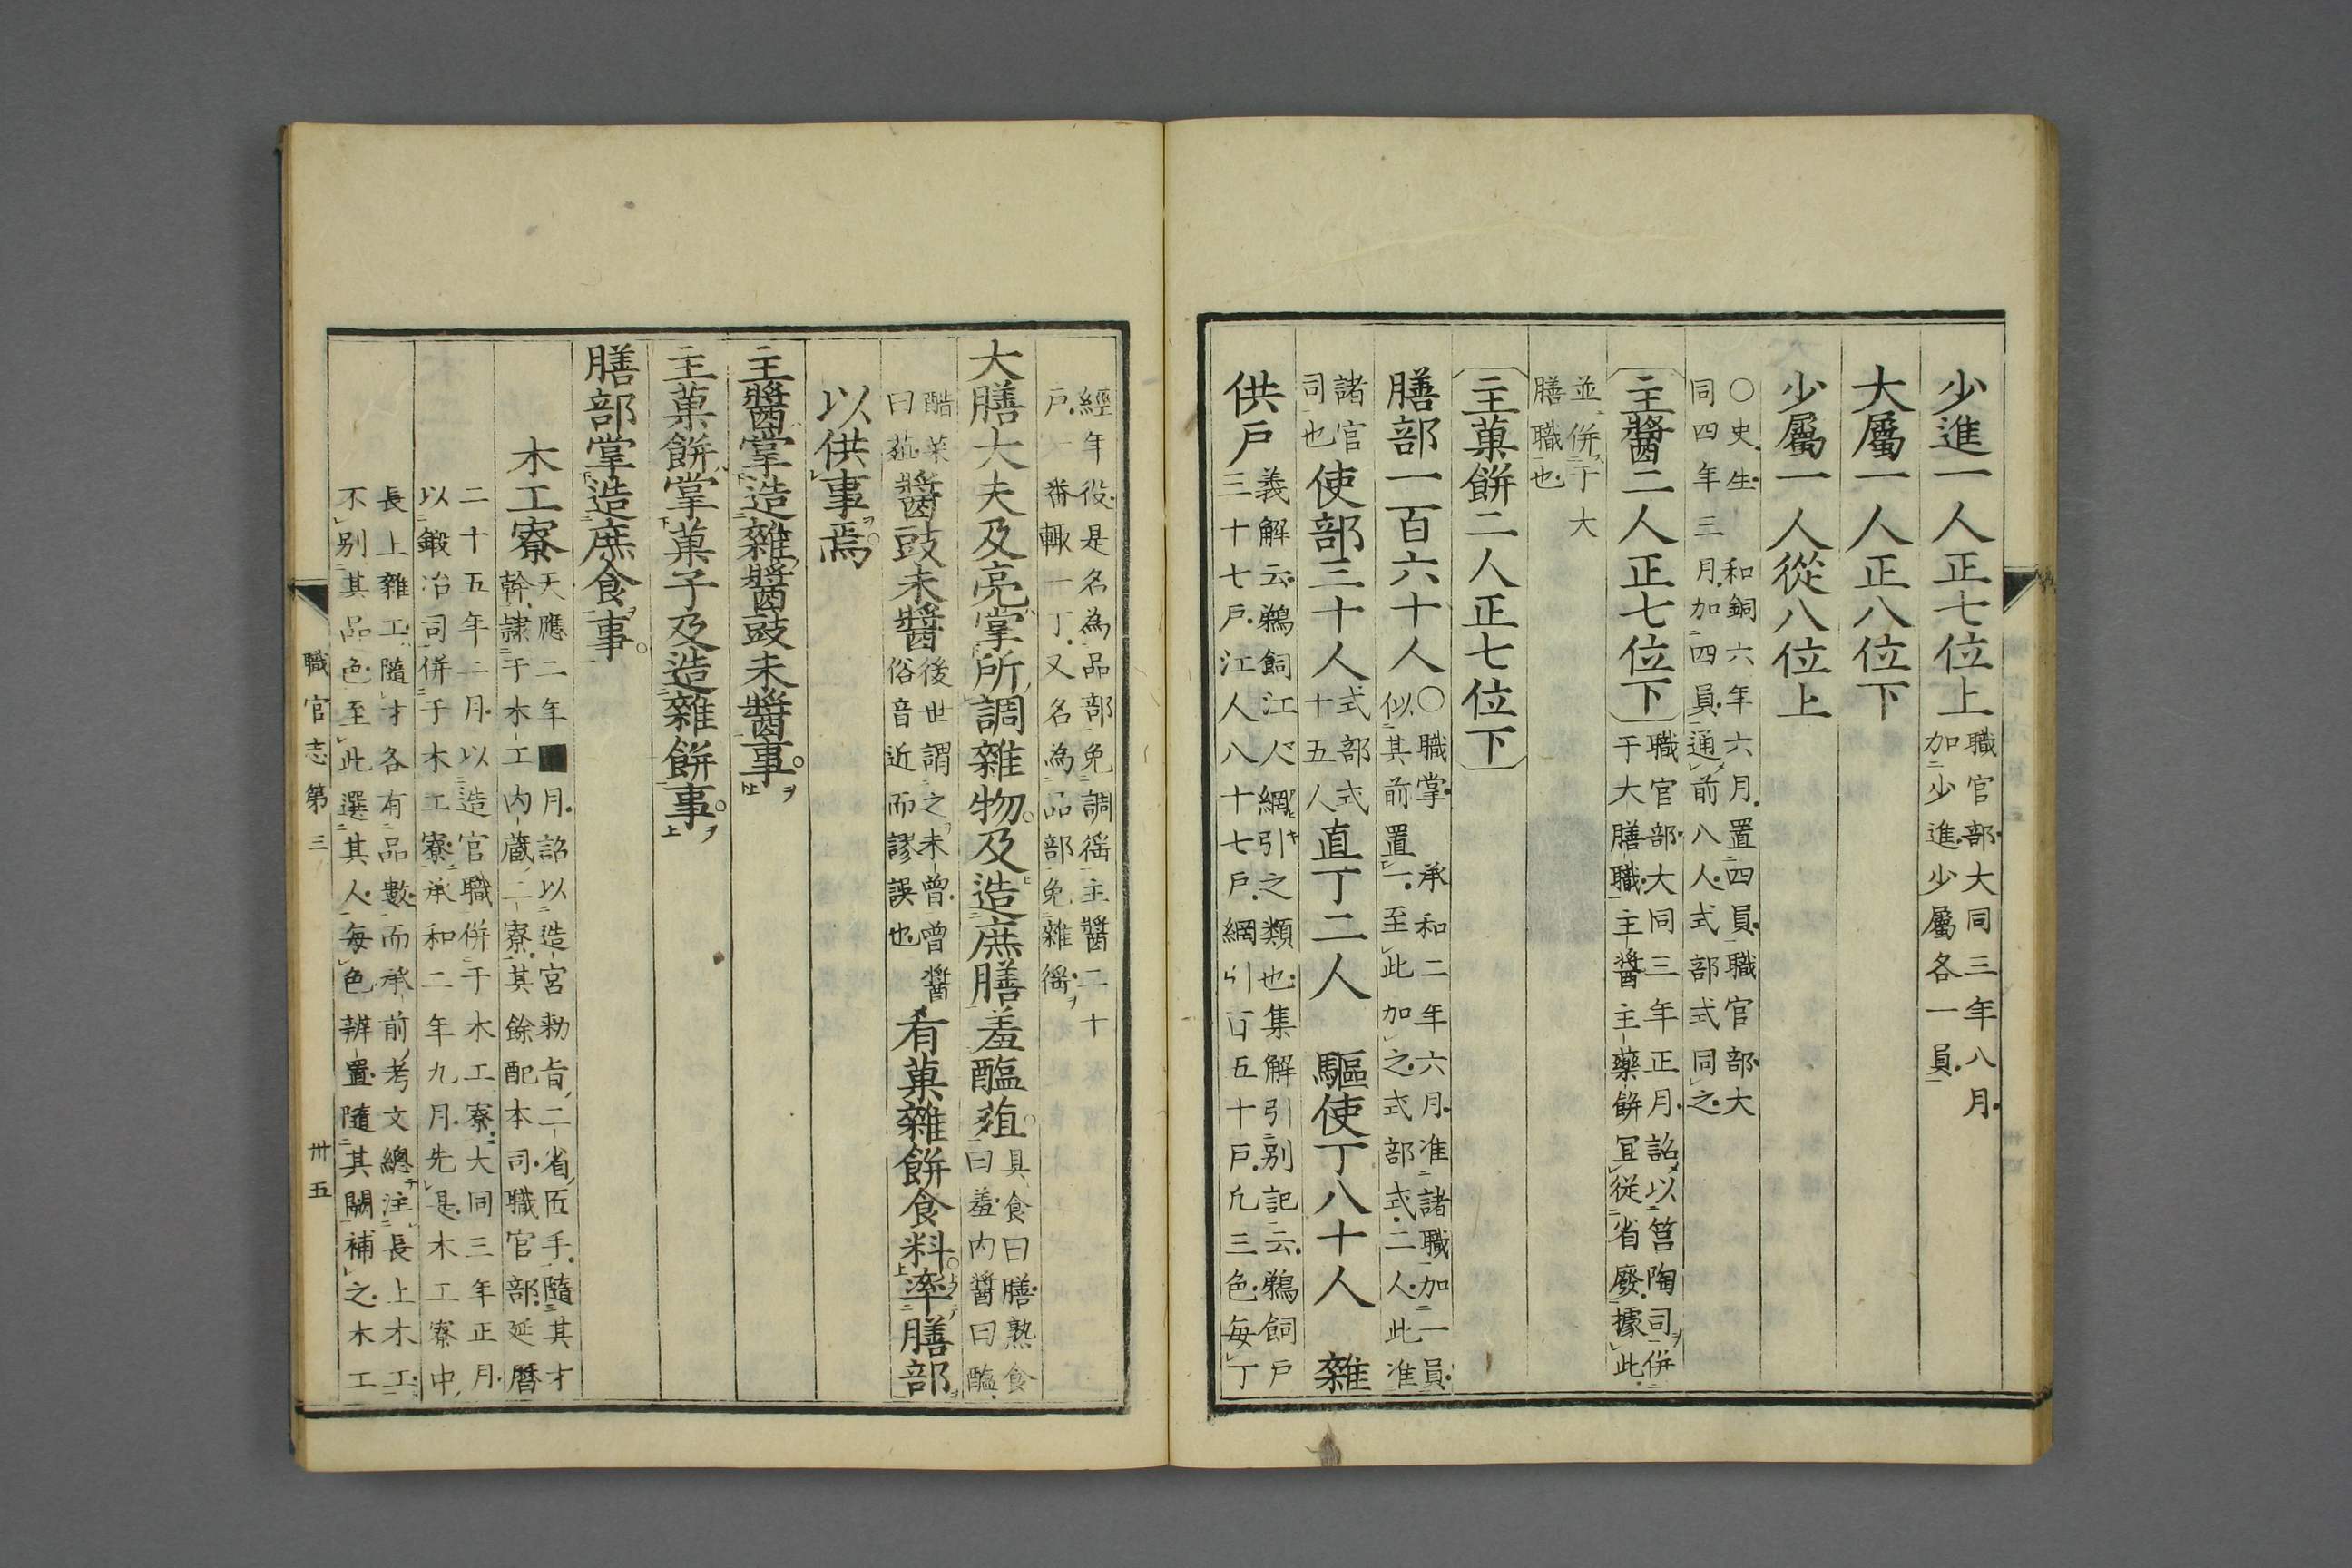 少進一人正七位上職官部大同三年八月加少進少屬各一員
大屬一人正八位下
少屬一人從八位上
○史生和銅六年六月置四員職官部大同四年三月加四員通前八人式部式同之
主醬二人正七位下職官部大同三年正月詔以筥陶司併于大膳職主醬主藥餅宜從省廢據此
並併于大膳職也
主菓餅二人正七位下
膳部一百六十人○職掌承和二年六月准諸職加一員似其前置一至此加之式部式二人此准
諸官司也使部三十人式部式十五人直丁二人驅使丁八十人雜
供戶義解云鵜飼江人網引之類也集解引別記云鵜飼戶三十七戶江人八十七戶網引百五十戶凡三色每丁
經年役是名為品部免調徭主醬二十戶一番輙一丁又名為品部免雜徭
大膳大夫及亮掌所調雜物及造庶膳羞醢葅具食曰膳熟食曰羞內醬曰醢
酷菜曰葅醬豉未醬後世謂之未曾曾醬俗音近而謬誤也肴菓雜餅食料率膳部
以供事焉
主醬掌造雜醬豉未醬事
主菓餅掌菓子及造雜餅事
膳部掌造庶食事
木工寮天應二年■月詔以造宮勅旨二省匠手隨其才幹隷于木工內藏二寮其餘配本司職官部延曆
二十五年二月以造官職併于木工寮大同三年正月以鍛冶司併于木工寮承和二年九月先是木工寮中
長上雜工隨才各有品數而承前考文總注長上木工不別其品色至此選其人每色辨置隨其闕補之木工
職官志第三
卅五